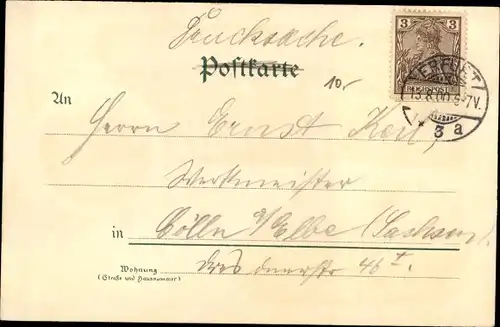 Drucksache.
Postkarte
3 3
REICHSPOST
ERFURT
13.8.00.6-7V.
* 3 a
10,-
An Herrn Ernst Keil,
Werkmeister
in Cölln a/Elbe (Sachsen)
Wohnung
(Straße und Hausnummer)
Dresdnerstr 46 I.